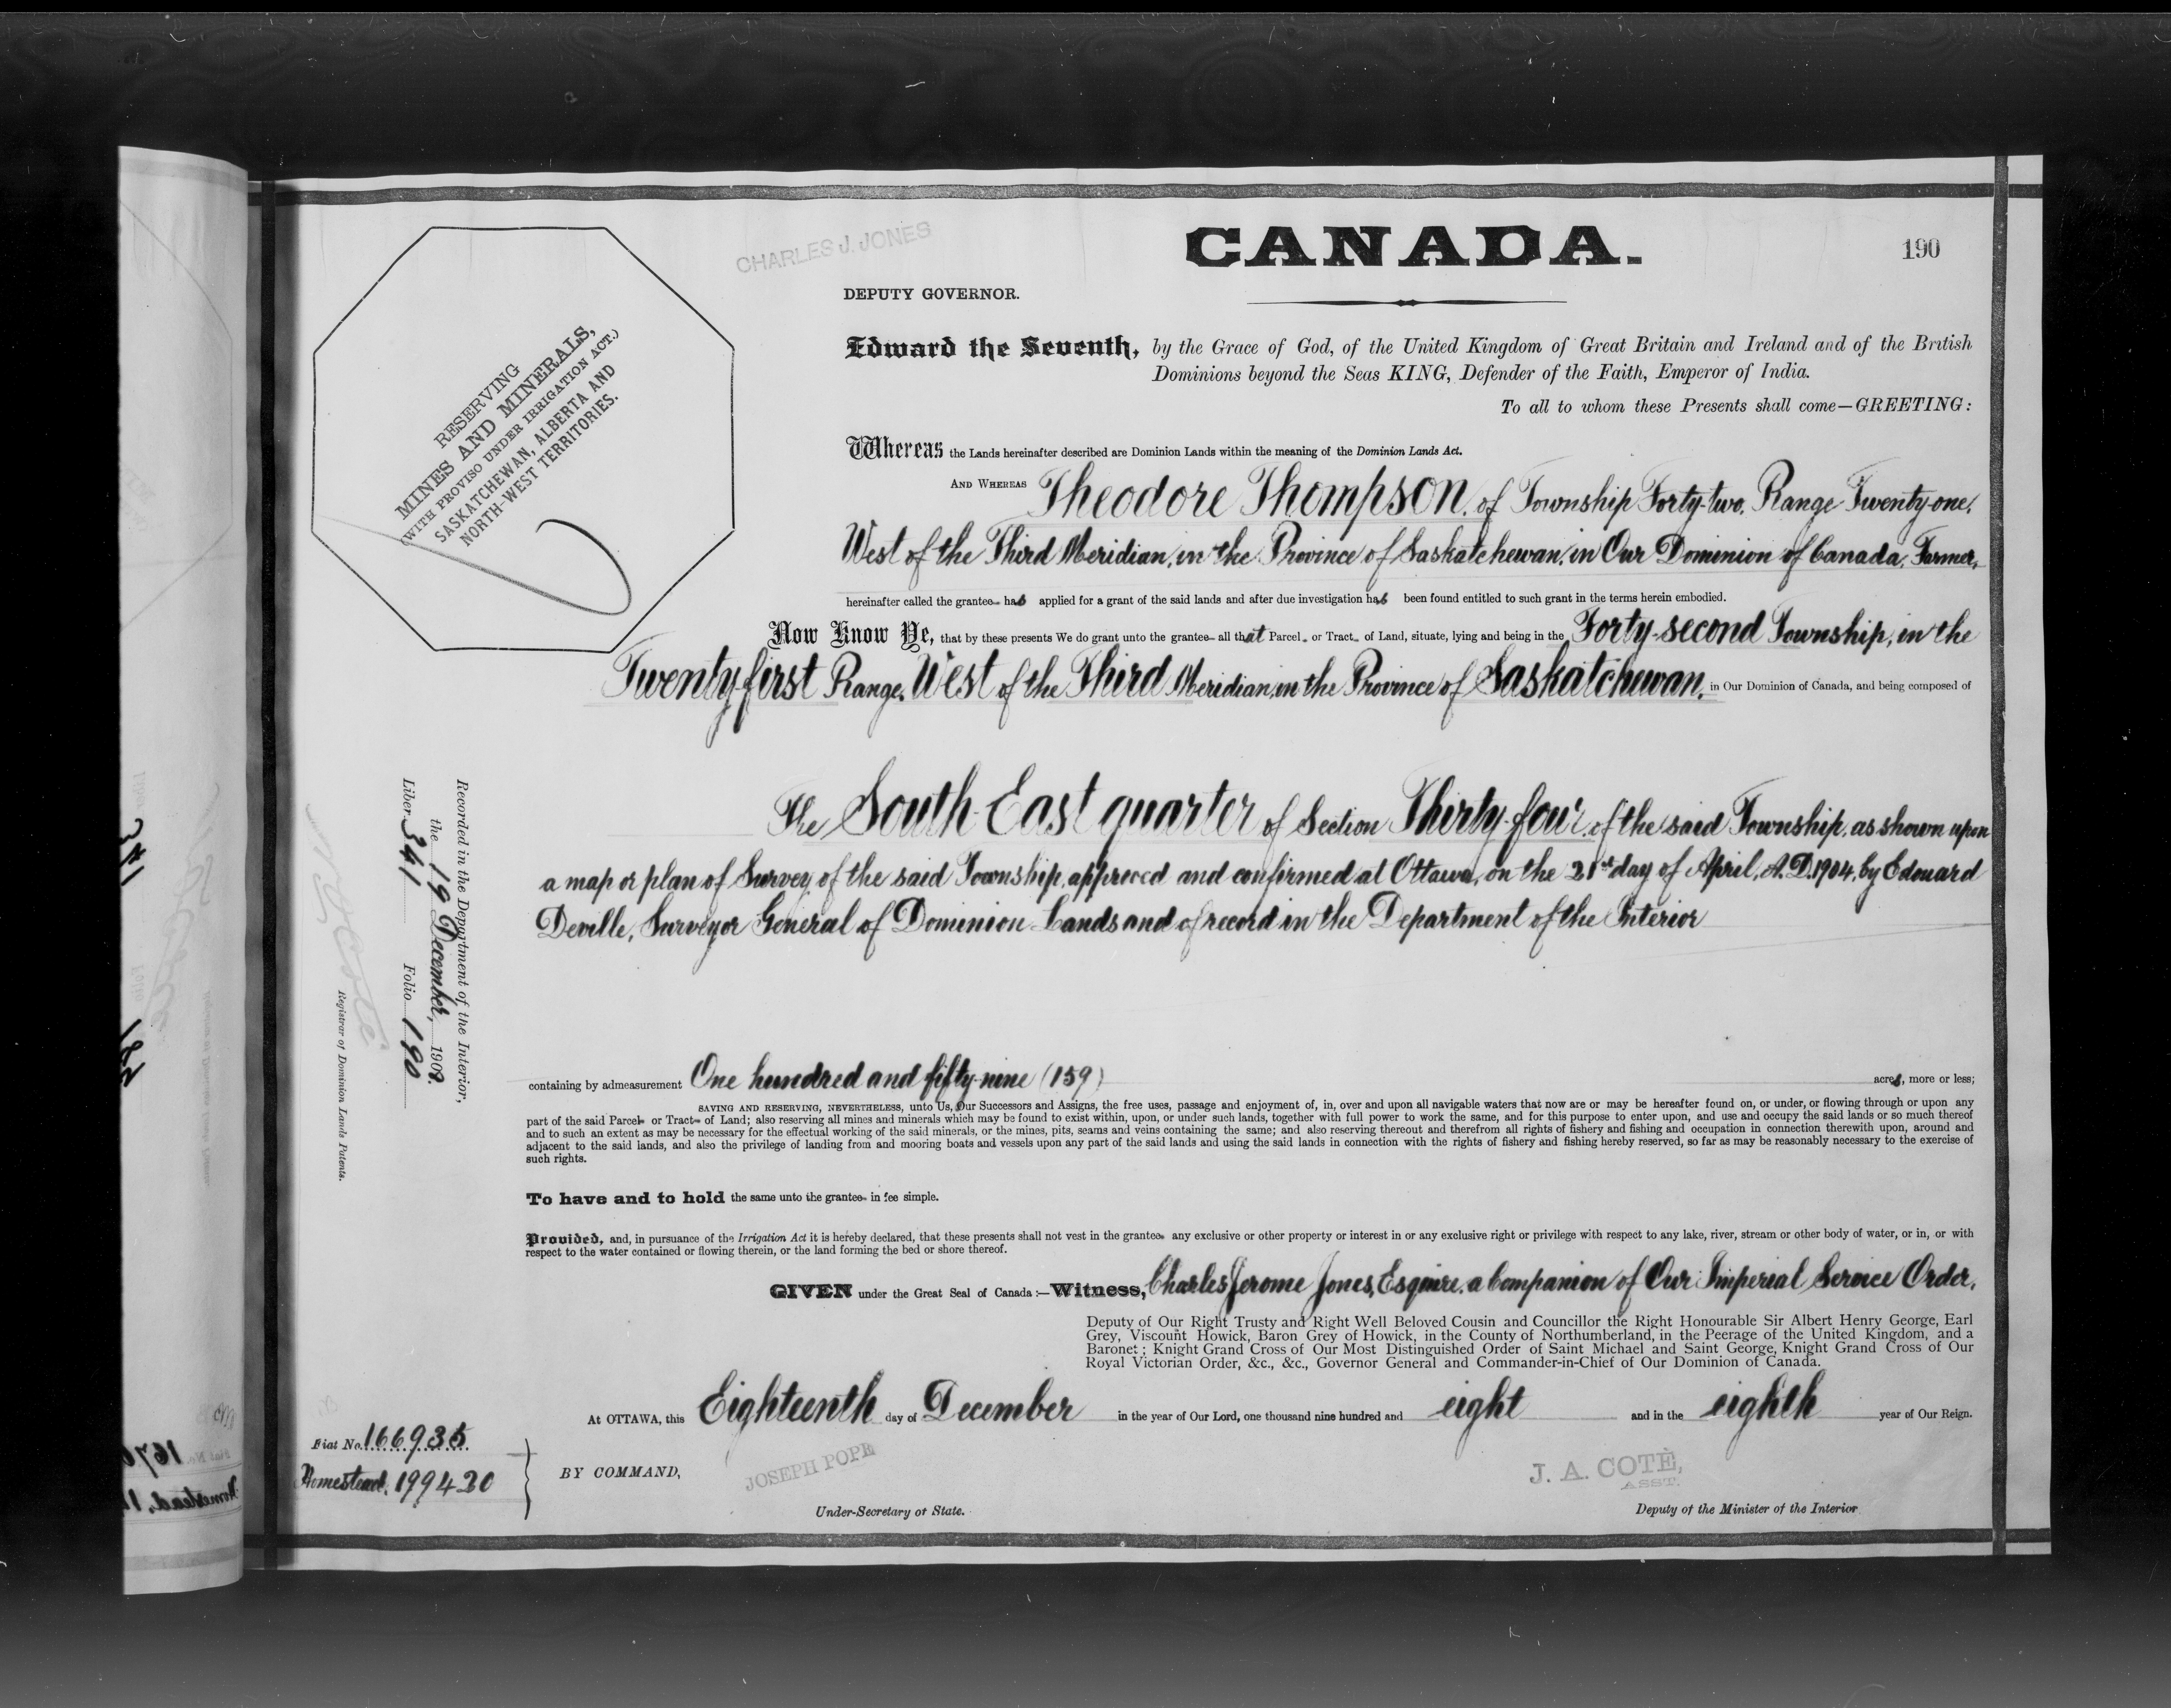 CHARLES J. JONES
CANADA.
190
DEPUTY GOVERNOR.
RESERVING
MINES AND MINERALS,
(WITH PROVISO UNDER IRRIGATION ACT.)
SASKATCHEWAN, ALBERTA AND
NORTH-WEST TERRITORIES.
Edward the Seventh, by the Grace of God, of the United Kingdom of Great Britain and Ireland and of the British
Dominions beyond the Seas KING, Defender of the Faith, Emperor of India.
To all to whom these Presents shall come—GREETING:
Whereas the Lands hereinafter described are Dominion Lands within the meaning of the Dominion Lands Act.
AND WHEREAS Theodore Thompson, of Township Forty-two, Range Twenty-one,
West of the Third Meridian, in the Province of Saskatchewan, in Our Dominion of Canada, Farmer,
hereinafter called the grantee has applied for a grant of the said lands and after due investigation has been found entitled to such grant in the terms herein embodied.
Now Know Ye, that by these presents We do grant unto the grantee all that Parcel or Tract of Land, situate, lying and being in the Forty-second Township, in the
Twenty-first Range, West of the Third Meridian, in the Province of Saskatchewan, in Our Dominion of Canada, and being composed of
The South East quarter of Section Thirty-four of the said Township, as shown upon
a map or plan of Survey of the said Township, approved and confirmed at Ottawa, on the 21st day of April, A.D. 1904, by Edouard
Deville, Surveyor General of Dominion Lands and of record in the Department of the Interior
containing by admeasurement One hundred and fifty-nine (159) acres, more or less;
SAVING AND RESERVING, NEVERTHELESS, unto Us, Our Successors and Assigns, the free uses, passage and enjoyment of, in, over and upon all navigable waters that now are or may be hereafter found on, or under, or flowing through or upon any
part of the said Parcel or Tract of Land; also reserving all mines and minerals which may be found to exist within, upon, or under such lands, together with full power to work the same, and for this purpose to enter upon, and use and occupy the said lands or so much thereof
and to such an extent as may be necessary for the effectual working of the said minerals, or the mines, pits, seams and veins containing the same; and also reserving thereout and therefrom all rights of fishery and fishing and occupation in connection therewith upon, around and
adjacent to the said lands, and also the privilege of landing from and mooring boats and vessels upon any part of the said lands and using the said lands in connection with the rights of fishery and fishing hereby reserved, so far as may be reasonably necessary to the exercise of
such rights.
To have and to hold the same unto the grantee in fee simple.
Provided, and, in pursuance of the Irrigation Act it is hereby declared, that these presents shall not vest in the grantee any exclusive or other property or interest in or any exclusive right or privilege with respect to any lake, river, stream or other body of water, or in, or with
respect to the water contained or flowing therein, or the land forming the bed or shore thereof.
GIVEN under the Great Seal of Canada:—Witness, Charles Jerome Jones, Esquire, a Companion of Our Imperial Service Order,
Deputy of Our Right Trusty and Right Well Beloved Cousin and Councillor the Right Honourable Sir Albert Henry George, Earl
Grey, Viscount Howick, Baron Grey of Howick, in the County of Northumberland, in the Peerage of the United Kingdom, and a
Baronet; Knight Grand Cross of Our Most Distinguished Order of Saint Michael and Saint George, Knight Grand Cross of Our
Royal Victorian Order, &c., &c., Governor General and Commander-in-Chief of Our Dominion of Canada.
At OTTAWA, this Eighteenth day of December in the year of Our Lord, one thousand nine hundred and eight and in the eighth year of Our Reign.
BY COMMAND,
JOSEPH POPE
Under-Secretary of State.
J. A. COTÉ,
ASST.
Deputy of the Minister of the Interior
Recorded in the Department of the Interior,
the 19 December, 1908.
Liber 341 Folio 190
N O Coté
Registrar of Dominion Lands Patents.
Fiat No. 166935
Homestead, 199420